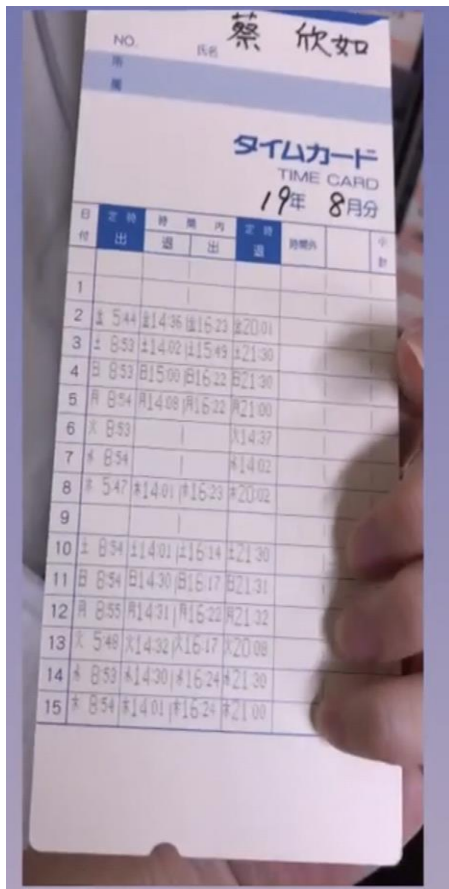 NO. 氏名 蔡 欣如
所
属
タイムカード
TIME CARD
19年 8月分
日付 定時出 時間内退 時間内出 定時退 時間外 小数
1
2 金 5:44 金14:36 金16:23 金20:01
3 土 8:53 土14:02 土15:49 土21:30
4 日 8:53 日15:00 日16:22 日21:30
5 月 8:54 月14:08 月16:22 月21:00
6 火 8:53 火14:37
7 水 8:54 水14:02
8 木 5:47 木14:01 木16:23 木20:02
9
10 土 8:54 土14:01 土16:14 土21:30
11 日 8:54 日14:30 日16:17 日21:31
12 月 8:55 月14:31 月16:22 月21:32
13 火 5:48 火14:32 火16:17 火20:08
14 水 8:53 水14:30 水16:24 水21:30
15 木 8:54 木14:01 木16:24 木21:00